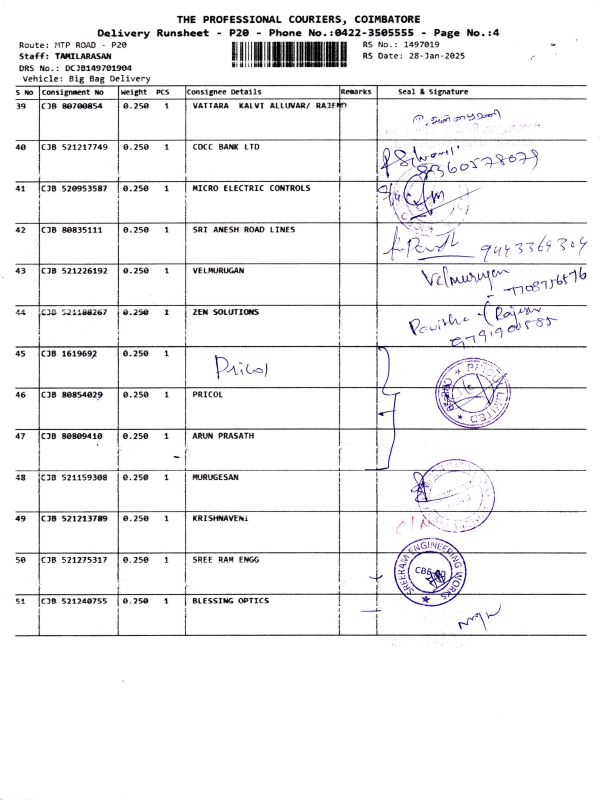 THE PROFESSIONAL COURIERS, COIMBATORE
Delivery Runsheet - P20 - Phone No.:0422-3505555 - Page No.:4
Route: MTP ROAD - P20 RS No.: 1497019
Staff: TAMILARASAN RS Date: 28-Jan-2025
DRS No.: DCJB149701904
Vehicle: Big Bag Delivery
S No Consignment No Weight PCS Consignee Details Remarks Seal & Signature
39 CJB 80700854 0.250 1 VATTARA KALVI ALLUVAR/ RAJEND
40 CJB 521217749 0.250 1 CDCC BANK LTD
8360578079
41 CJB 520953587 0.250 1 MICRO ELECTRIC CONTROLS
42 CJB 80835111 0.250 1 SRI ANESH ROAD LINES
9443369304
43 CJB 521226192 0.250 1 VELMURUGAN Velmurugan
7708756576
44 CJB 521188267 0.250 1 ZEN SOLUTIONS
Rajesh
45 CJB 1619692 0.250 1 Pricol
46 CJB 80854029 0.250 1 PRICOL PRICOL LIMITED
47 CJB 80809410 0.250 1 ARUN PRASATH
48 CJB 521159308 0.250 1 MURUGESAN
49 CJB 521213789 0.250 1 KRISHNAVENI
50 CJB 521275317 0.250 1 SREE RAM ENGG SREERAM ENGINEERING WORKS CBE
51 CJB 521240755 0.250 1 BLESSING OPTICS